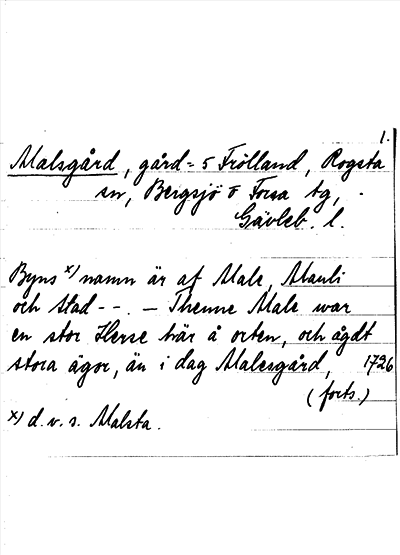 1.
Malsgård, gård = 5 Frölland, Rogsta
sn, Bergsjö o Forsa tg,
Gävleb. l.
Byns x) namn är af Male, Mauli
och Stad - - . — Thenne Male war
en stor Herse här å orten, och ägdt
stora ägor, än i dag Malesgård, 1726
(forts.)
x) d. v. s. Malsta.